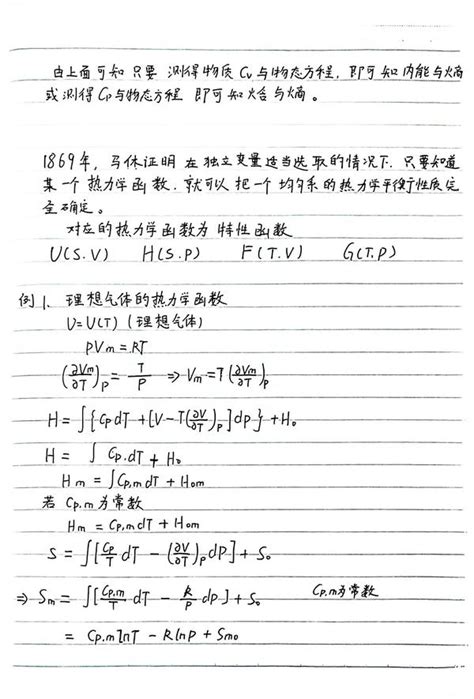 由上面可知 只要 测得物质 Cv 与物态方程, 即可知内能与熵
或测得 Cp 与物态方程 即可知焓与熵。
1869年, 马休证明 在独立变量适当选取的情况下, 只要知道
某一个热力学函数, 就可以把一个均匀系的热力学平衡性质完
全确定。
对应的热力学函数为 特性函数
U(S.V) H(S.P) F(T.V) G(T.P)
例1. 理想气体的热力学函数
U=U(T) (理想气体)
PVm = RT
(∂Vm/∂T)p = T/P ⇒ Vm = T(∂Vm/∂T)p
H = ∫{CpdT + [V-T(∂V/∂T)p]dp} + H₀
H = ∫ Cp.dT + H₀
Hm = ∫Cp,mdT + H₀m
若 Cp.m 为常数
Hm = Cp,mdT + H₀m
S = ∫[Cp/T dT - (∂V/∂T)p dP] + S₀
⇒ Sm = ∫[Cp.m/T dT - R/P dp] + S₀ Cp.m为常数
= Cp.m lnT - R lnP + Sm₀